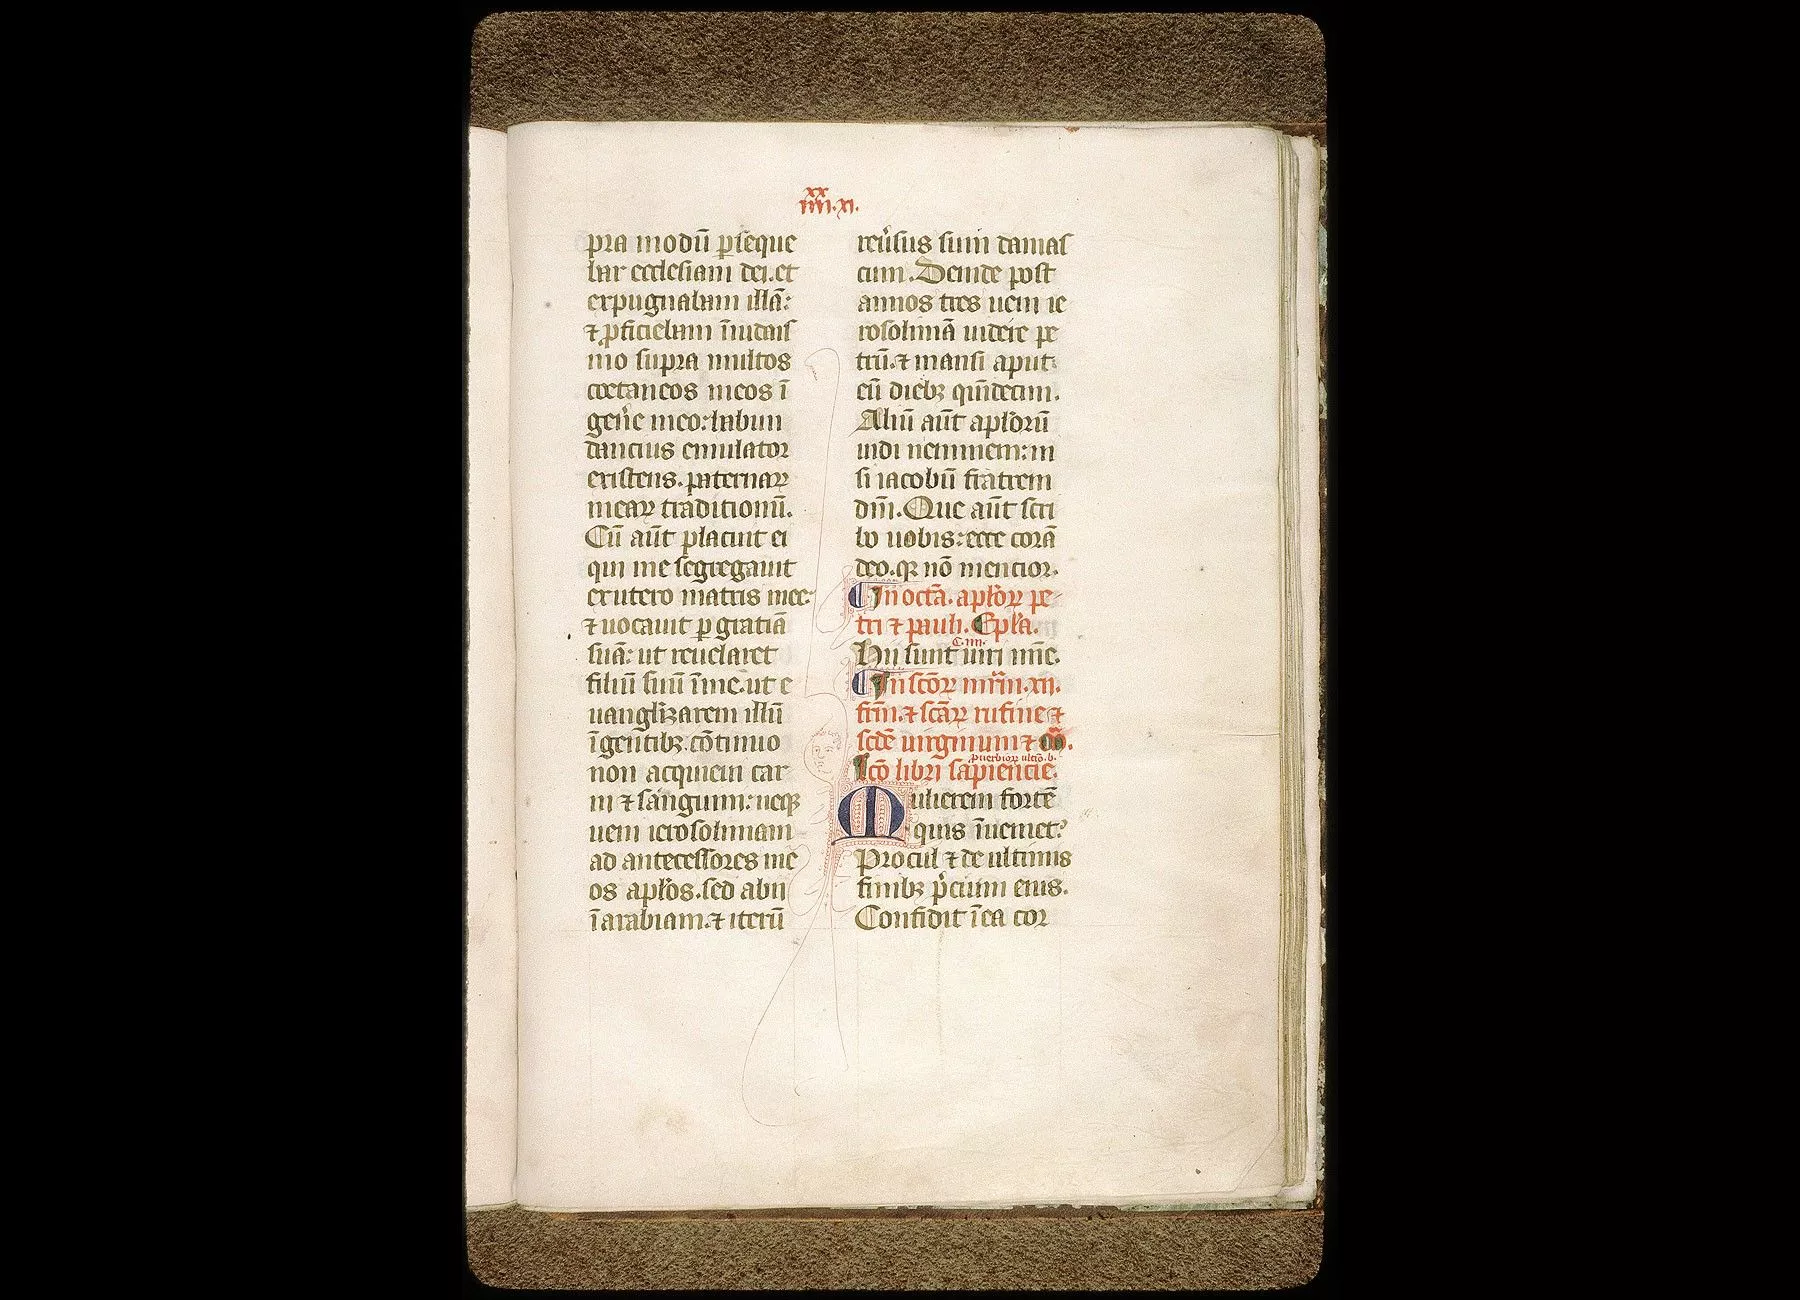 xx
iiii.xi.
pra modū ꝑseque
bar ecclesiam dei.et
expugnabam illā:
⁊ ꝓficiebam īiudais
mo supra multos
coetaneos meos ī
geñe meo:habun
dancius emulator
existens.paternaꝝ
meaꝝ traditionū.
Cū aūt placuit ei
qui me segregauit
exutero matris mee:
⁊ uocauit ꝑ gratiā
suā: ut reuelaret
filiū suū īme.ut e
uangłizarem illū
īgentibꝫ.cōtinuo
non acquieui car
ni ⁊ sanguini: neqꝫ
ueni ierosolimam
ad antecessores me
os apłos.sed abii
īarabiam.⁊ iterū
reuˀsus sum damas
cum.Deinde post
annos tres ueni ie
rosolimā uidere pe
trū.⁊ mansi aput
eū diebꝫ quīdecim.
Aliū aūt apłorū
uidi neminem:ni
si iacobū fratrem
dñi.Que aūt scri
bo uobis:ecce corā
deo.qꝛ nō mencior.
In octā. apłoꝝ pe
tri ⁊ pauli. Epła.
C.iiii.
Hii sunt uiri mīe.
In scōꝝ mr̄m.xii.
frm̄.⁊ scāꝝ rufine ⁊
scdē uirginum ⁊
ꝓuerbioꝝ ultīo.b.
łco libri sapiencie.
Mulierem fortē
quis īueniet?
Procul ⁊ de ultimis
finibꝫ p̄cium eius.
Confidit īea cor